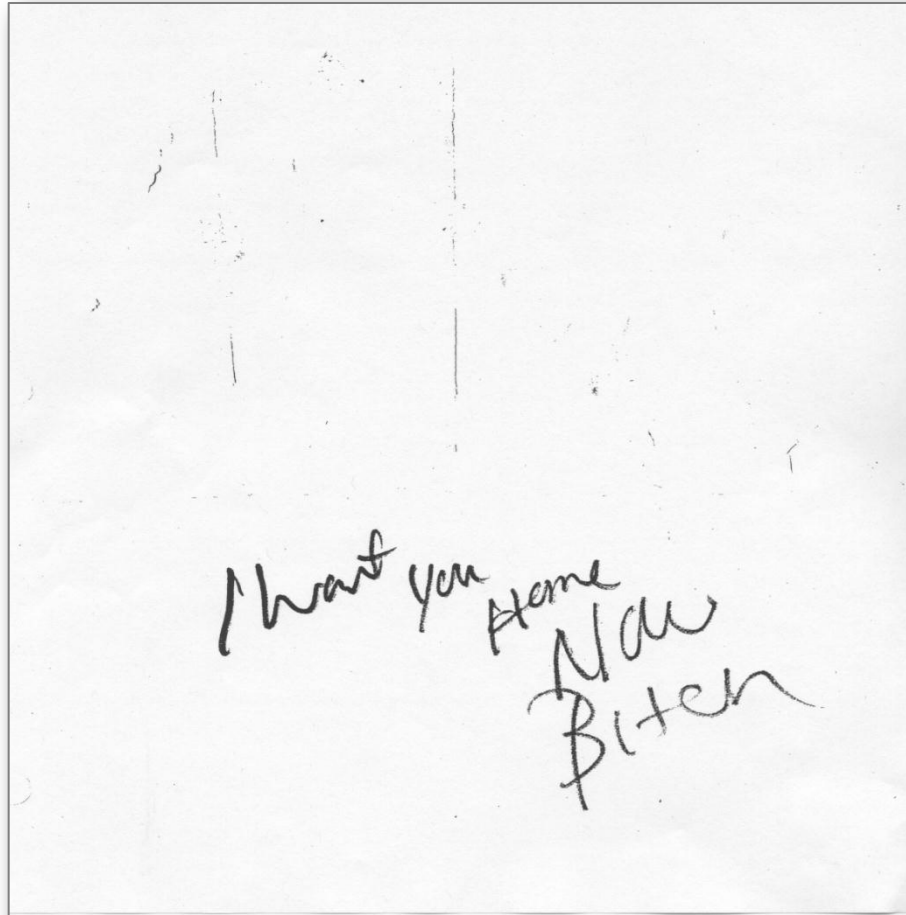 I want you Home
Now
Bitch